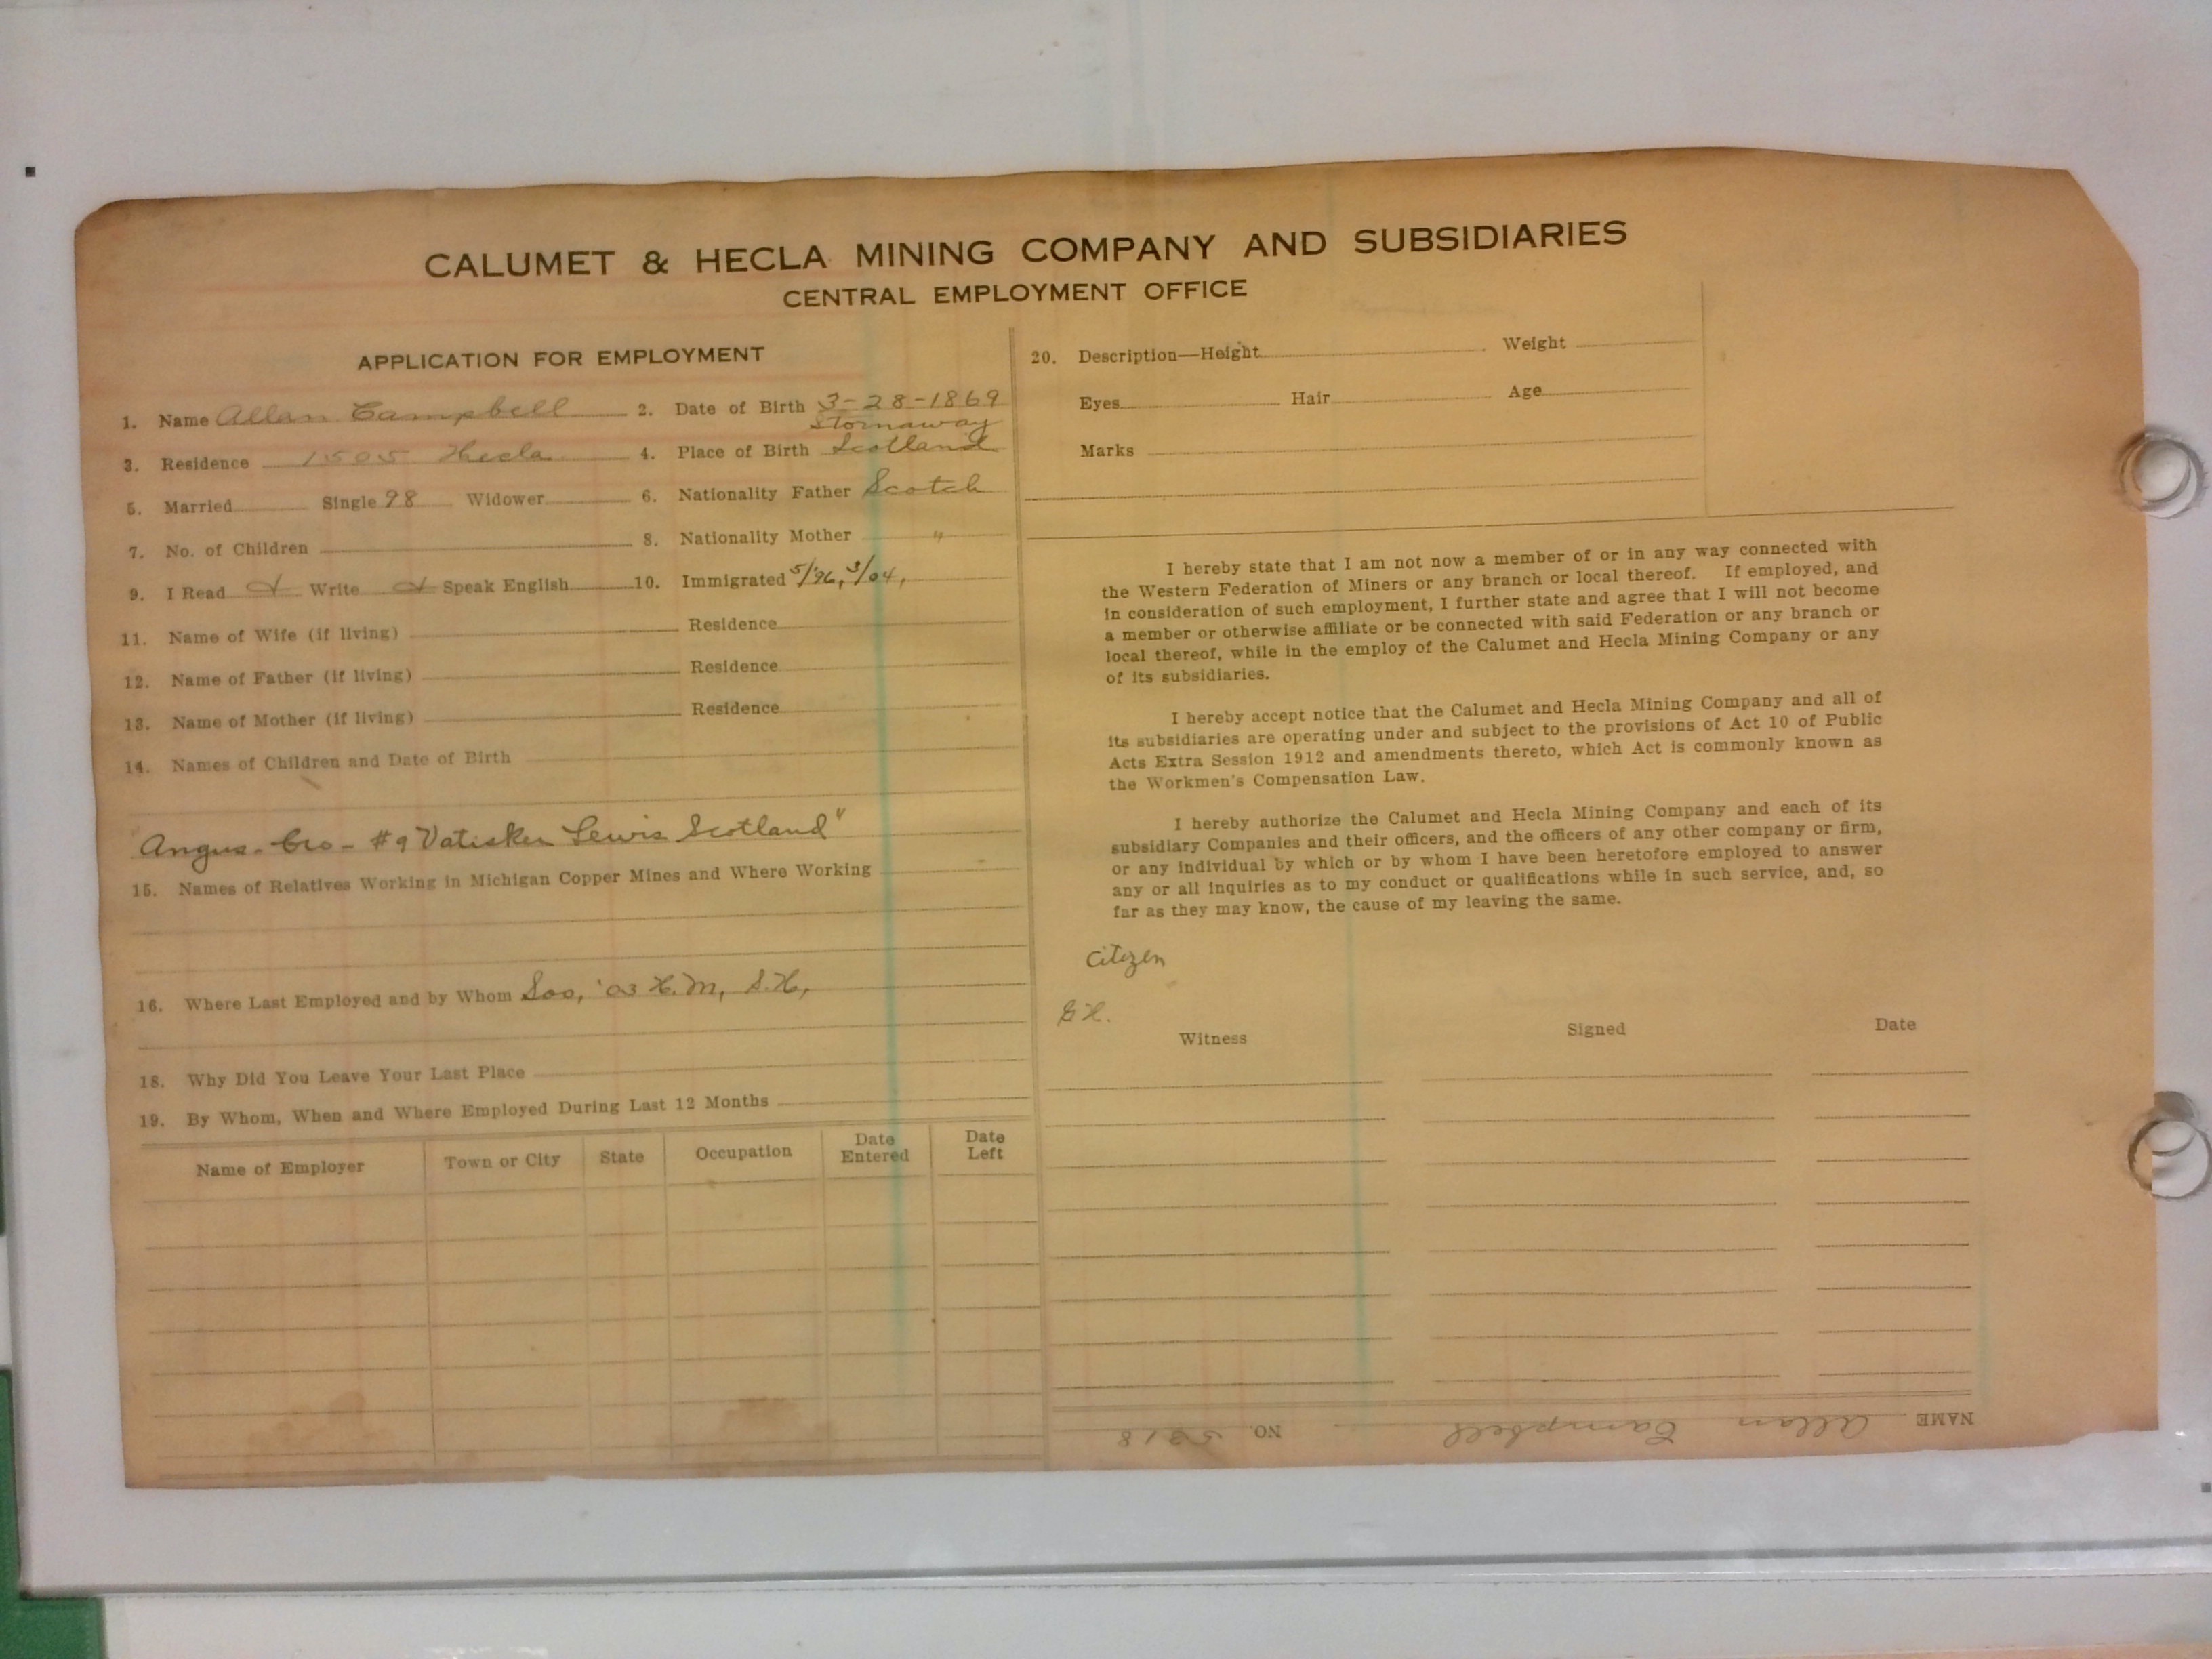 CALUMET & HECLA MINING COMPANY AND SUBSIDIARIES
CENTRAL EMPLOYMENT OFFICE
APPLICATION FOR EMPLOYMENT
1. Name Allan Campbell 2. Date of Birth 3-28-1869
Stornaway
3. Residence 1505 Hecla 4. Place of Birth Scotland
5. Married Single 98 Widower 6. Nationality Father Scotch
7. No. of Children 8. Nationality Mother "
9. I Read Write Speak English 10. Immigrated 5/96, 3/04,
11. Name of Wife (if living) Residence
12. Name of Father (if living) Residence
13. Name of Mother (if living) Residence
14. Names of Children and Date of Birth
"Angus - bro - #9 Vatisker Lewis Scotland"
15. Names of Relatives Working in Michigan Copper Mines and Where Working
16. Where Last Employed and by Whom Soo, '03 H.M, S.H,
18. Why Did You Leave Your Last Place
19. By Whom, When and Where Employed During Last 12 Months
Name of Employer Town or City State Occupation Date Entered Date Left
20. Description—Height Weight
Eyes Hair Age
Marks
I hereby state that I am not now a member of or in any way connected with
the Western Federation of Miners or any branch or local thereof. If employed, and
in consideration of such employment, I further state and agree that I will not become
a member or otherwise affiliate or be connected with said Federation or any branch or
local thereof, while in the employ of the Calumet and Hecla Mining Company or any
of its subsidiaries.
I hereby accept notice that the Calumet and Hecla Mining Company and all of
its subsidiaries are operating under and subject to the provisions of Act 10 of Public
Acts Extra Session 1912 and amendments thereto, which Act is commonly known as
the Workmen's Compensation Law.
I hereby authorize the Calumet and Hecla Mining Company and each of its
subsidiary Companies and their officers, and the officers of any other company or firm,
or any individual by which or by whom I have been heretofore employed to answer
any or all inquiries as to my conduct or qualifications while in such service, and, so
far as they may know, the cause of my leaving the same.
Citizen
Witness Signed Date
NAME Allan Campbell NO. 5318